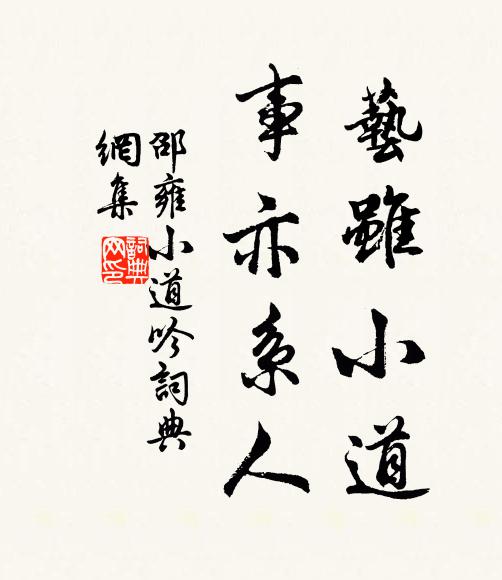 藝雖小道
事亦系人
邵雍小道吟詞典
網集
詞典
网印